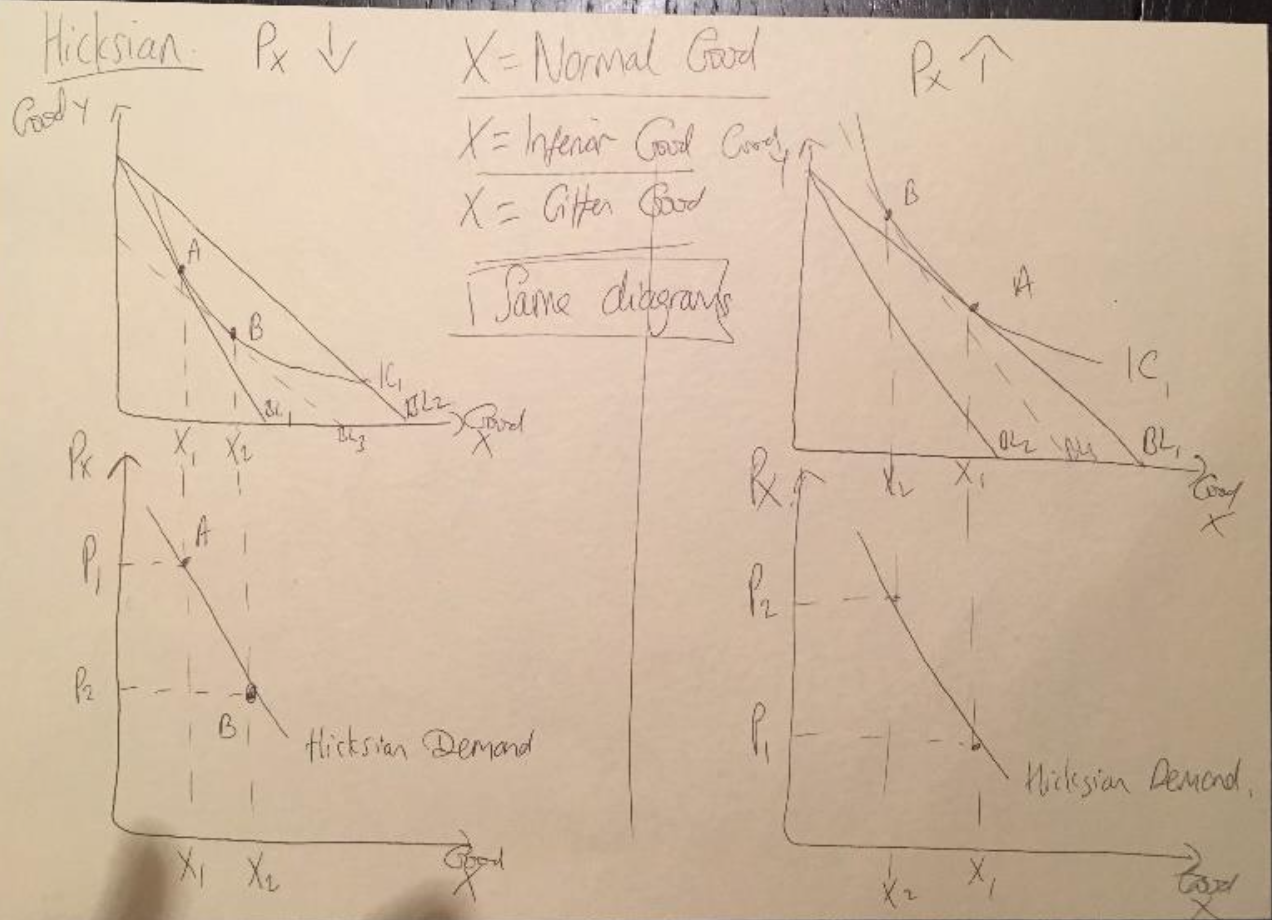 Hicksian. Px ↓
X = Normal Good
Px ↑
X = Inferior Good
X = Giffen Good
Same diagrams
Good Y
A
B
IC1
BL1
BL3
BL2
Good X
X1
X2
Px
P1
A
P2
B
Hicksian Demand
X1
X2
Good X
Good Y
B
A
IC1
BL2
BL1
X2
X1
Good X
Px
P2
P1
Hicksian Demand.
X2
X1
Good X